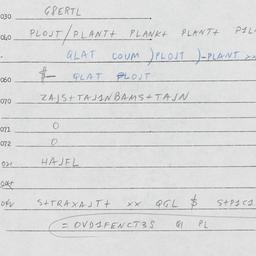 030 G8ERTL
040 PLOJT/PLANT+ PLANK+ PLANT+ P1L
QLAT COUM )PLOJT )-PLANT xx
060 $- QLAT PLOJT
070 ZAJS+TAJ1NBAMS+TAJN
071 O
072 O
HAJFL
S+TRAXAJT+ xx QGL $ S+P1C1
= OVD1FENCT3S G1 PL